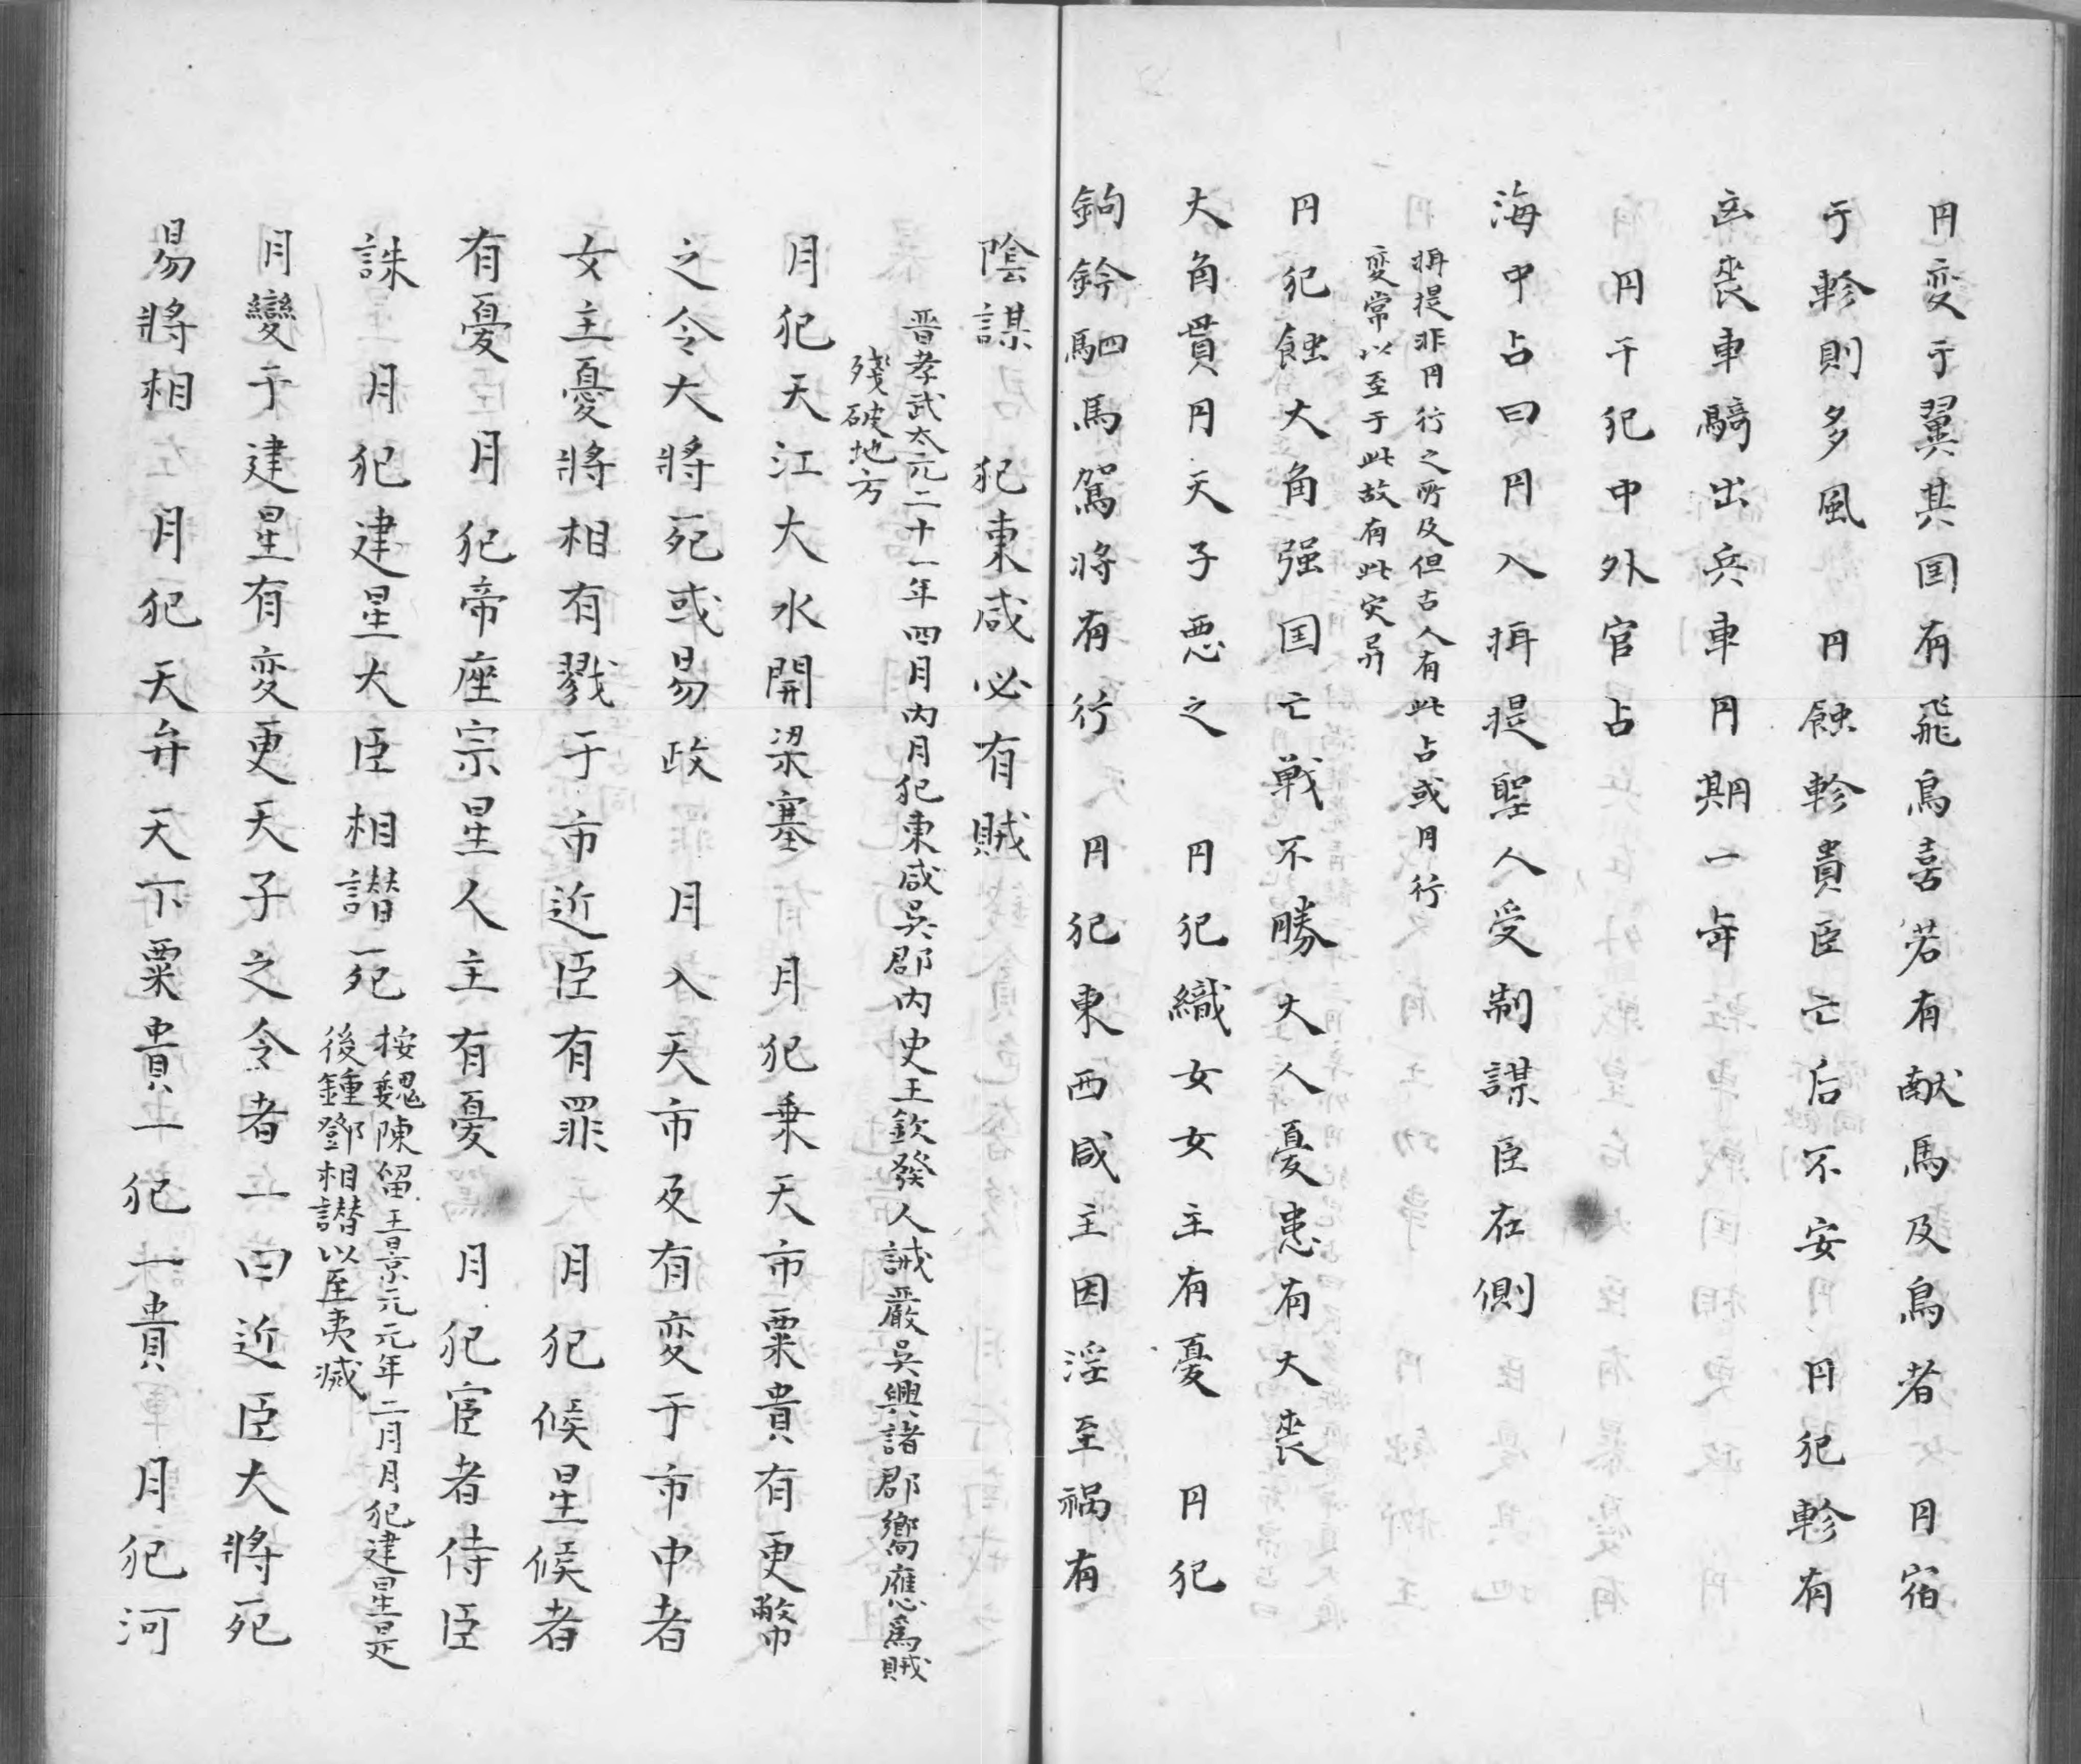 円変于翼其国有飛鳥喜若有献馬及鳥者　円宿
于軫則多風　円蝕軫貴臣亡后不安　円犯軫有
凶喪車騎出兵車円期一年
円干犯中外官占
海中占曰円入摂提聖人受制謀臣在側
摂提非円行之所及但古人有此占或月行
変常以至于此故有此災異
円犯蝕大角强国亡戦不勝大人憂患有大喪
大角貫円天子悪之　円犯織女女主有憂　円犯
鉤鈐駟馬駕将有行　円犯東西咸主因淫至禍有
陰謀　犯東咸必有賊
晋孝武太元二十一年四月内月犯東咸吳郡内史王欽發人誡嚴吳興諸郡嚮應爲賊
殘破地方
月犯天江大水開梁塞　月犯乗天市粟貴有更幣
之令大將死或易政　月入天市及有変于市中者
女主憂將相有戮于市近臣有罪　月犯候星候者
有憂月　犯帝座宗星人主有憂　月犯宦者侍臣
誅　月犯建星大臣相譖死
按魏陳留王景元元年二月月犯建星是
後鍾鄧相譖以至夷滅
月變于建星有変更天子之令者一曰近臣大將死
易將相　月犯天弁天下粟貴一犯一貴　月犯河